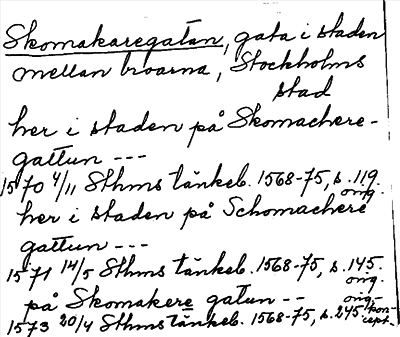 Skomakaregatan, gata i staden
mellan broarna, Stockholms
stad
her i staden på Skomachere-
gattun ---
1570 4/11 Sthms tänkeb. 1568-75, s. 119.
orig.
her i staden på Schomachere
gattun ---
1571 14/5 Sthms tänkeb. 1568-75, s. 145.
orig.
på Skomakere gatun --
1573 20/4 Sthms tänkeb. 1568-75, s. 245. orig.- kon-
cept.